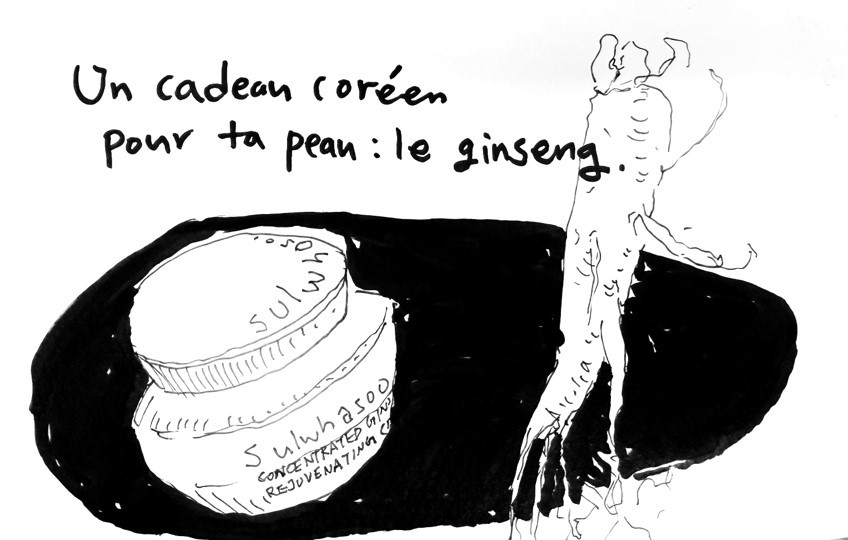 Un cadeau coréen
pour ta peau : le ginseng.
Sulwhasoo
Sulwhasoo
CONCENTRATED
REJUVENATING